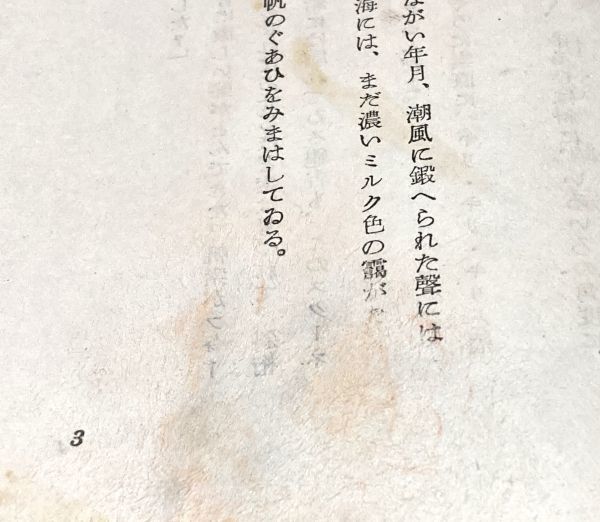 ながい年月、潮風に鍛へられた聲には
海には、まだ濃いミルク色の靄が
帆のぐあひをみまはしてゐる。
3